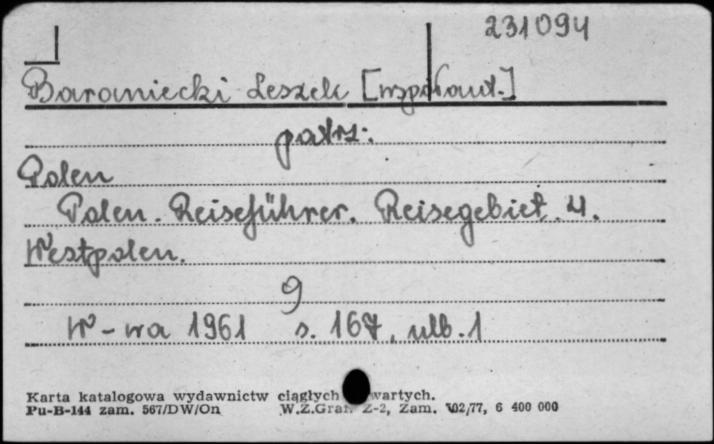 231094
Baraniecki Leszek [współaut.]
patrz:
Polen
Polen. Reiseführer. Reisegebiet 4.
Westpolen.
9
W-wa 1961 s. 167, ulb. 1
Karta katalogowa wydawnictw ciągłych wartych.
Pu-B-144 zam. 567/DW/On W.Z.Graf. Z-2, Zam. 102/77, 6 400 000